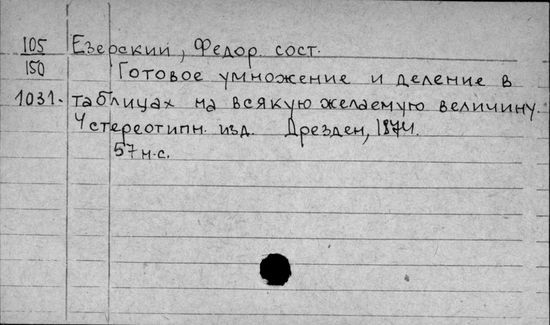 105 Езерский, Федор сост.
150 Готовое умножение и деление в
1031. таблицах на всякую желаемую величину.
4 стереотипн. изд. Дрезден, 1874.
57 н.с.